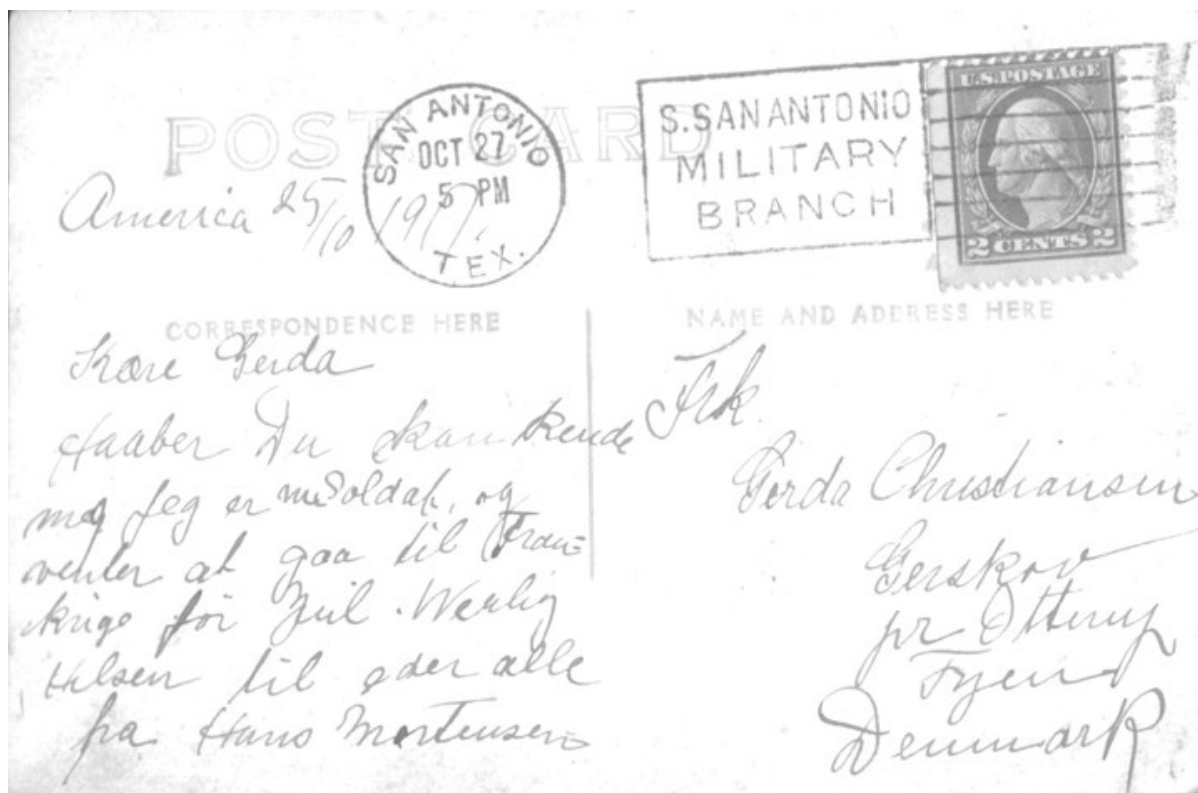 POST CARD
SAN ANTONIO
OCT 27
5 PM
TEX.
S. SAN ANTONIO
MILITARY
BRANCH
U.S. POSTAGE
2 CENTS 2
America 25/10 1917.
CORRESPONDENCE HERE
Kære Gerda
Haaber Du kan kende
mig Jeg er Soldat, og
venter at gaa til Fran=
krige før Jul. Werlig
Hilsen til eder alle
fra Hans Mortensen
NAME AND ADDRESS HERE
Frk.
Gerda Christiansen
Gerskov
pr Otterup
Fyen
Denmark